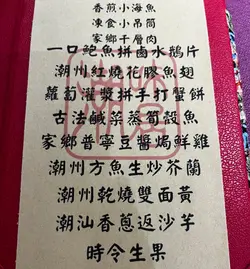 香煎小海魚
凍食小吊筒
家鄉千層肉
一口鮑魚拼鹵水鵝片
潮州紅燒花膠魚翅
蘿蔔灌漿拼手打蟹餅
古法鹹菜蒸筍殼魚
家鄉普寧豆醬焗鮮雞
潮州方魚生炒芥蘭
潮州乾燒雙面黃
潮汕香蔥返沙芋
時令生果